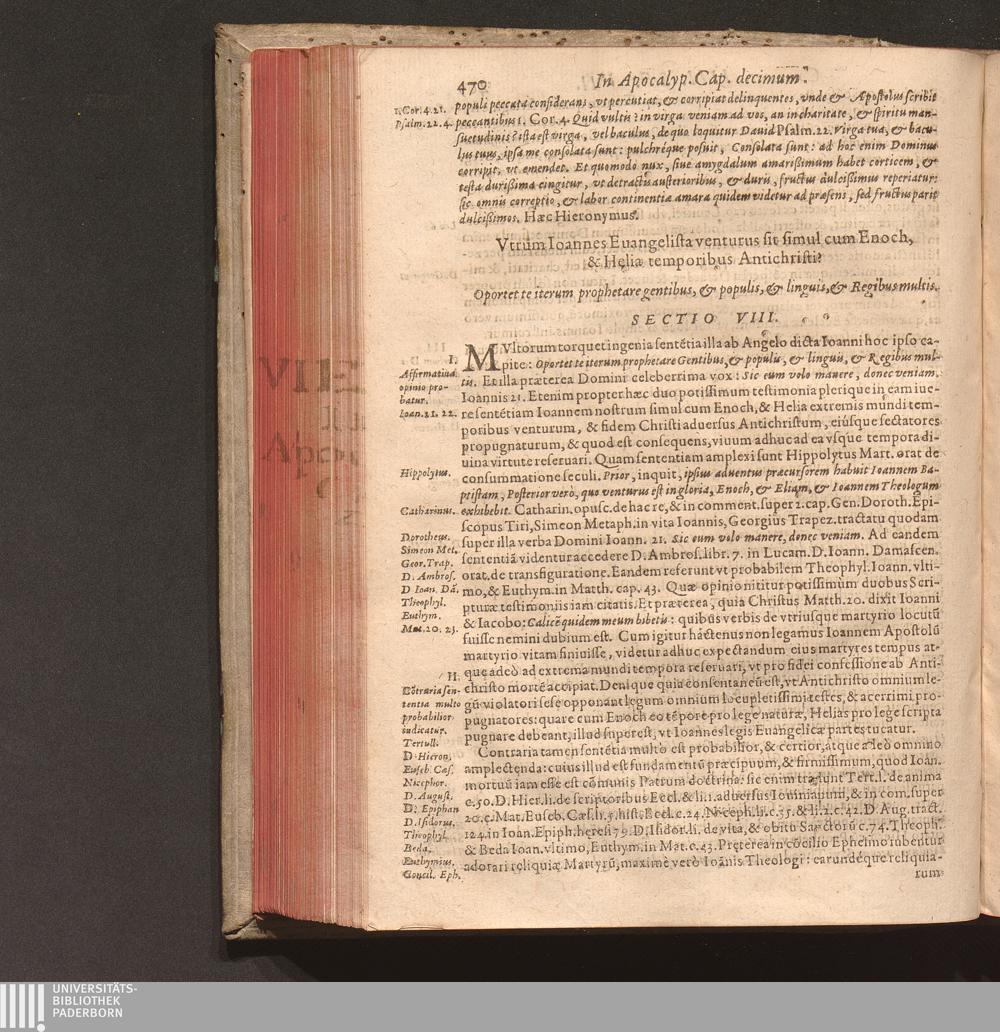 470 In Apocalyp. Cap. decimum.
1. Cor. 4. 21.
Psalm. 22. 4.
populi peccata considerans, vt percutiat, & corripiat delinquentes, vnde & Apostolus scribit
peccantibus 1. Cor. 4. Quid vultis? in virga veniam ad vos, an in charitate, & spiritu man-
suetudinis? ista est virga, vel baculus, de quo loquitur Dauid Psalm. 22. Virga tua, & bacu-
lus tuus, ipsa me consolata sunt: pulchréque posuit, Consolata sunt: ad hoc enim Dominus
corripit, vt emendet. Et quomodo nux, siue amygdalum amarißimum habet corticem, &
testa durißima cingitur, vt detractis austerioribus, & duris, fructus dulcißimus reperiatur:
sic omnis correptio, & labor continentiæ amara quidem videtur ad præsens, sed fructus parit
dulcißimos. Hæc Hieronymus.
Vtrum Ioannes Euangelista venturus sit simul cum Enoch,
& Heliæ temporibus Antichristi?
Oportet te iterum prophetare gentibus, & populis, & linguis, & Regibus multis.
SECTIO VIII.
I.
Affirmatiua
opinio pro-
batur.
Ioan. 21. 22.
Hippolytus.
Catharinus.
Dorotheus.
Simeon Met.
Geor. Trap.
D. Ambros.
D Ioan. Dã.
Theophyl.
Euthym.
Mat. 20. 23.
MVltorum torquet ingenia sentẽtia illa ab Angelo dicta Ioanni hoc ipso ca-
pite: Oportet te iterum prophetare Gentibus, & populis, & linguis, & Regibus mul-
tis. Et illa præterea Domini celeberrima vox: Sic eum volo manere, donec veniam.
Ioannis 21. Etenim propter hæc duo potissimum testimonia plerique in eam iue-
re sentẽtiam Ioannem nostrum simul cum Enoch, & Helia extremis mundi tem-
poribus venturum, & fidem Christi aduersus Antichristum, eiúsque sectatores
propugnaturum, & quod est consequens, viuum adhuc ad ea vsque tempora di-
uina virtute reseruari. Quam sententiam amplexi sunt Hippolytus Mart. orat de
consummatione seculi. Prior, inquit, ipsius aduentus præcursorem habuit Ioannem Ba-
ptistam, Posterior verò, quo venturus est in gloria, Enoch, & Eliam, & Ioannem Theologum
exhibebit. Catharin. opusc. de hac re, & in comment. super 2. cap. Gen. Doroth. Epi-
scopus Tiri, Simeon Metaph. in vita Ioannis, Georgius Trapez. tractatu quodam
super illa verba Domini Ioann. 21. Sic eum volo manere, donec veniam. Ad eandem
sententiã videntur accedere D. Ambros. libr. 7. in Lucam. D. Ioann. Damascen.
orat. de transfiguratione. Eandem referunt vt probabilem Theophyl. Ioann. vlti-
mo, & Euthym. in Matth. cap. 43. Quæ opinio nititur potissimùm duobus Scri-
pturæ testimoniis iam citatis. Et præterea, quia Christus Matth. 20. dixit Ioanni
& Iacobo: Calicẽ quidem meum bibetis: quibus verbis de vtriusque martyrio locutũ
fuisse nemini dubium est. Cum igitur hactenus non legamus Ioannem Apostolũ
martyrio vitam finiuisse, videtur adhuc expectandum eius martyres tempus at-
que adeò ad extrema mundi tempora reseruari, vt pro fidei confessione ab Anti-
christo mortẽ accipiat. Denique quia consentaneũ est, vt Antichristo omnium le-
gũ violatori sese opponant legum omnium locupletissimi testes, & acerrimi pro-
pugnatores: quare cum Enoch eo tẽpore pro lege naturæ, Helias pro lege scripta
pugnare debeant, illud superest, vt Ioannes legis Euangelicæ partes tueatur.
II.
Cõtraria sen-
tentia multo
probabilior
iudicatur.
Tertull.
D. Hieron.
Euseb. Cæs.
Nicephor.
D. August.
D. Epiphan
D. Isidorus.
Theophyl.
Beda.
Euthymius.
Concil. Eph.
Contraria tamen sentẽtia multo est probabilior, & certior, atque adeò omnino
amplectenda: cuius illud est fundamentũ præcipuum, & firmissimum, quod Ioan.
mortuũ iam esse est cõmunis Patrum doctrina: sic enim tradunt Tert. l. de anima
c. 50. D. Hier. li. de scriptoribus Eccl. & li. 1. aduersus Iouinianum, & in com. super
20. c. Mat. Euseb. Cæs. li. 3. hist. Eccl. c. 24. Niceph. li. c. 35. & li. 2. c. 42. D. Aug. tract.
124. in Ioan. Epiph. heresi 79. D. Isidor. li. de vita, & obitu Sanctorũ c. 74. Theoph.
& Beda Ioan. vltimo, Euthym. in Mat. c. 43. Præterea in cõcilio Ephesino iubentur
adorari reliquiæ Martyrũ, maximè verò Ioãnis Theologi: earundéque reliquia-
rum
UNIVERSITÄTS-
BIBLIOTHEK
PADERBORN